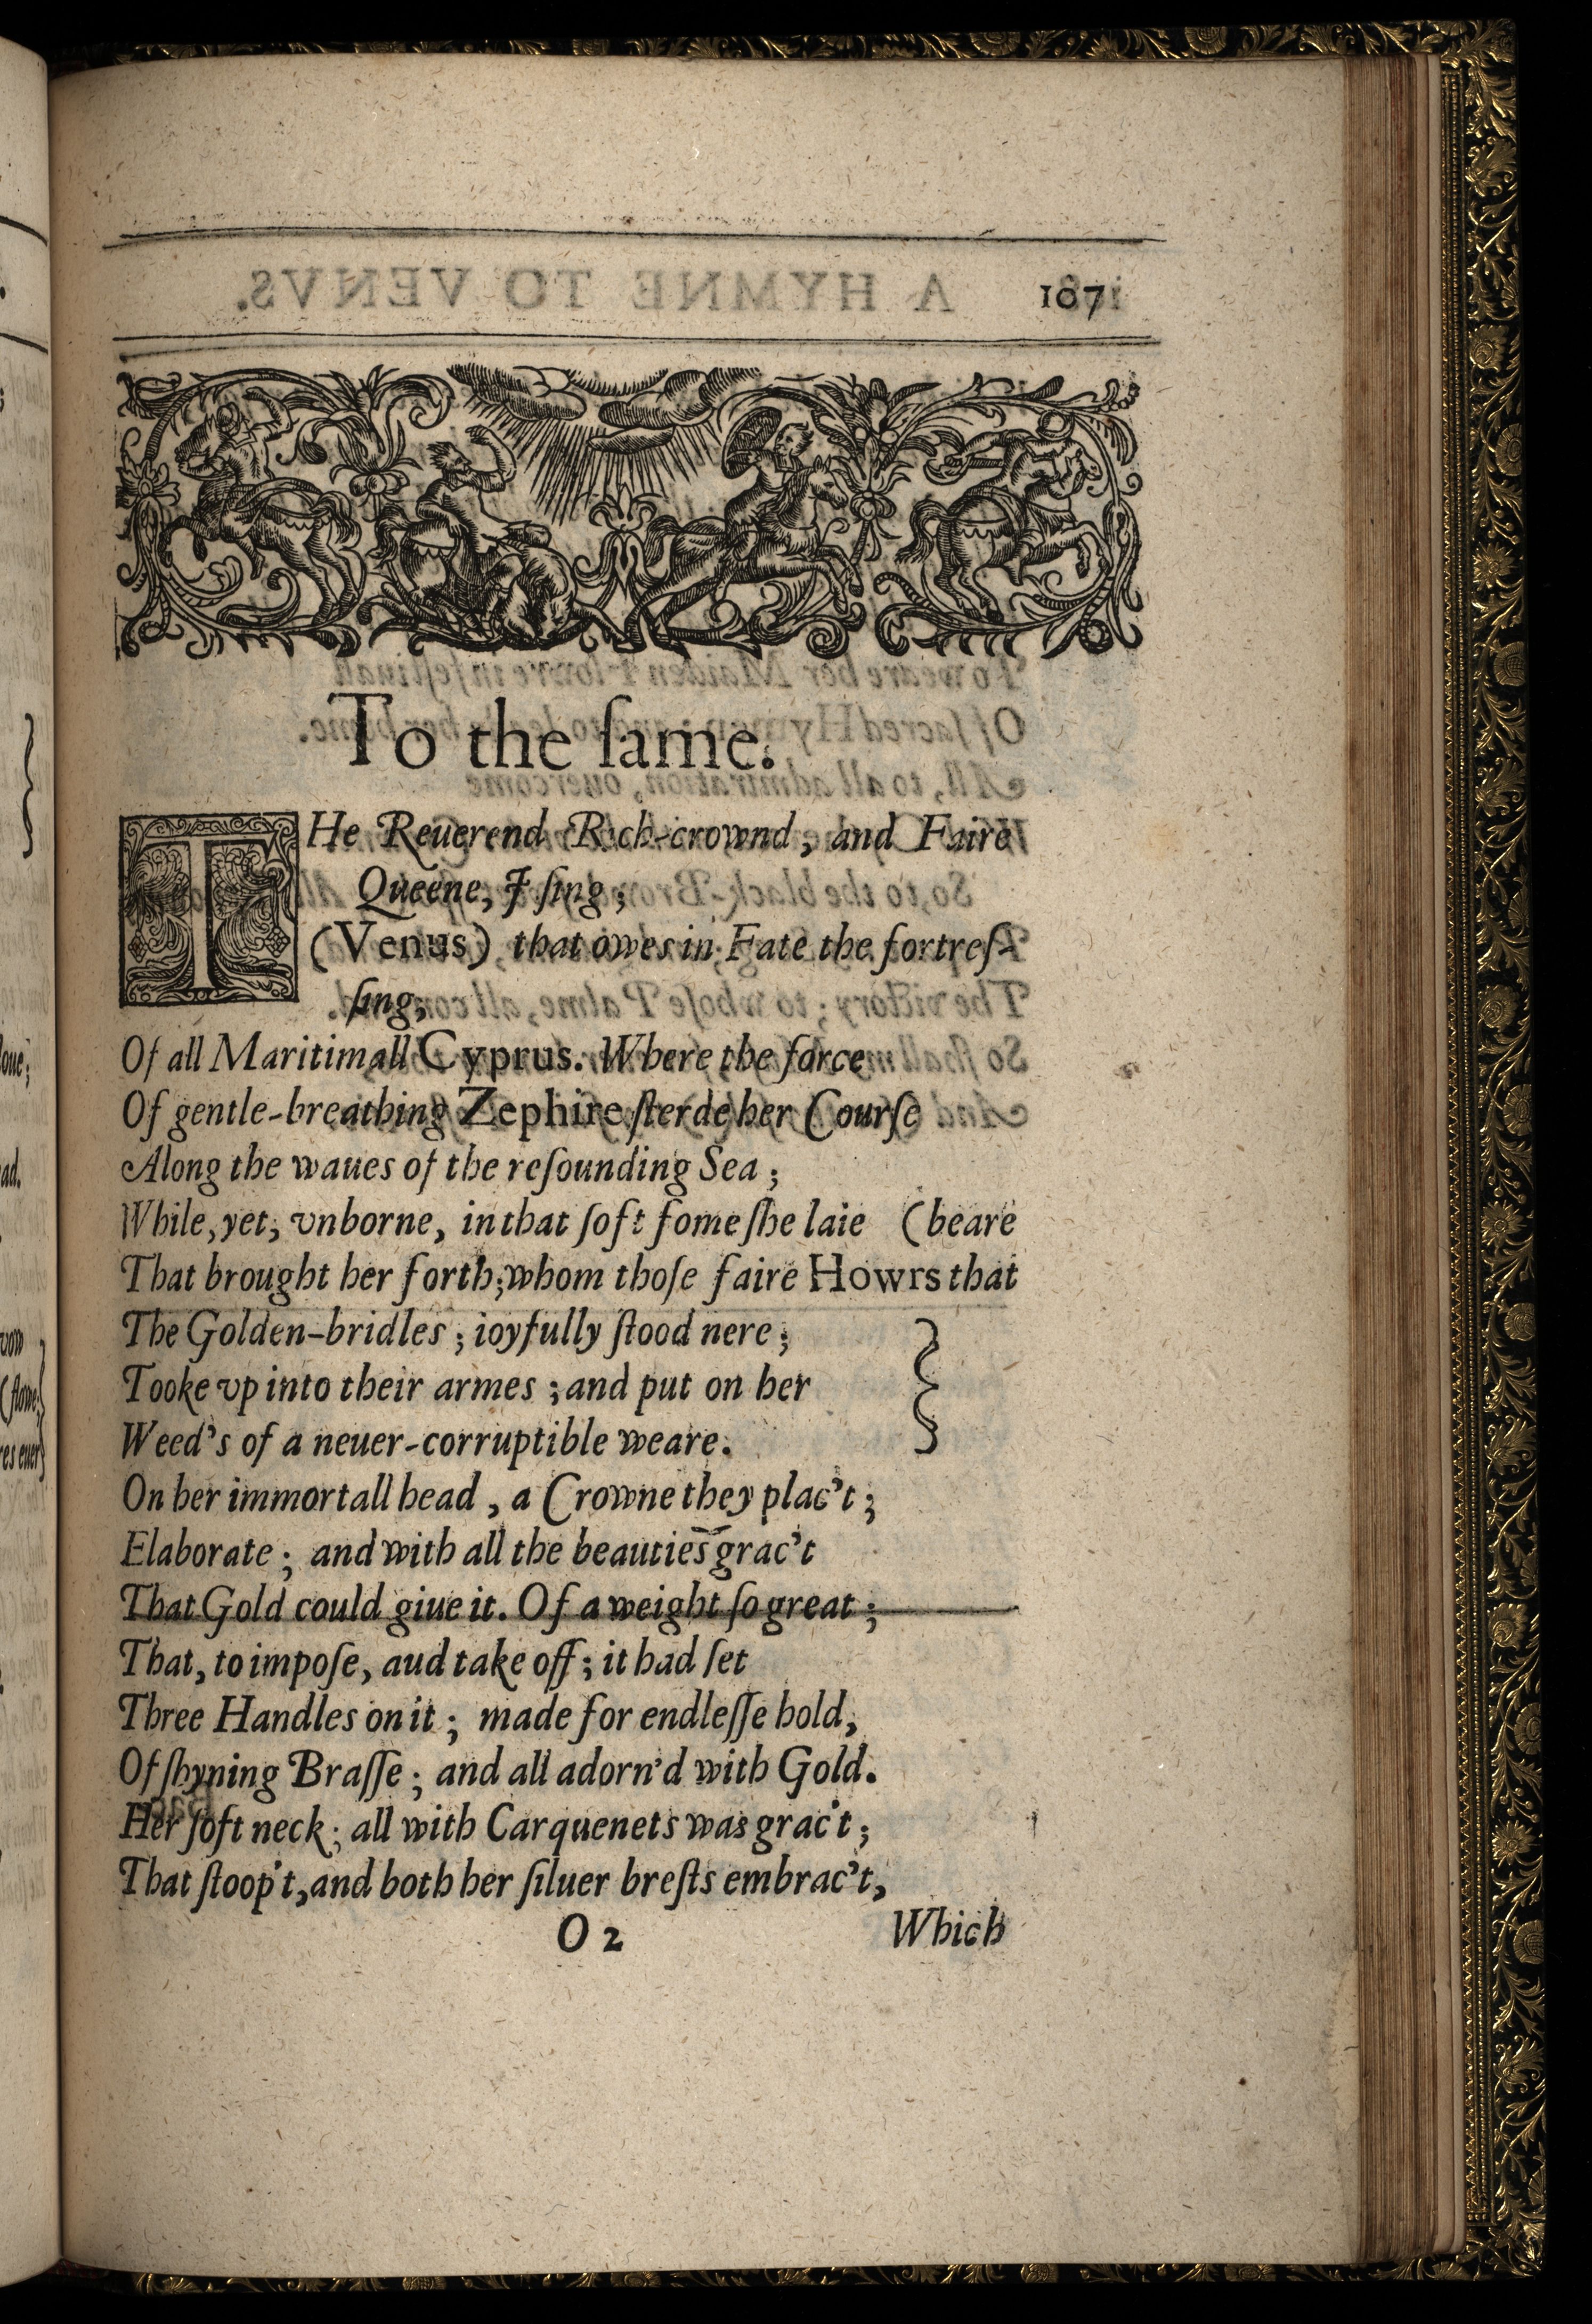 107
To the ſame.
THe Reuerend Rich-crownd, and Faire
Queene, I ſing;
(Venus) that owes in Fate the fortreſ-
ſing;
Of all Maritimall Cyprus. Where the force
Of gentle-breathing Zephire ſterde her Courſe
Along the waues of the reſounding Sea;
While, yet, vnborne, in that ſoft fome ſhe laie (beare
That brought her forth; whom thoſe faire Howrs that
The Golden-bridles; ioyfully ſtood nere;
Tooke vp into their armes; and put on her
Weed's of a neuer-corruptible weare.
On her immortall head, a Crowne they plac't;
Elaborate; and with all the beauties grac't
That Gold could giue it. Of a weight ſo great;
That, to impoſe, aud take off; it had ſet
Three Handles on it; made for endleſſe hold,
Of ſhyning Braſſe; and all adorn'd with Gold.
Her ſoft neck; all with Carquenets was grac't;
That ſtoop't, and both her ſiluer breſts embrac't,
O 2 Which